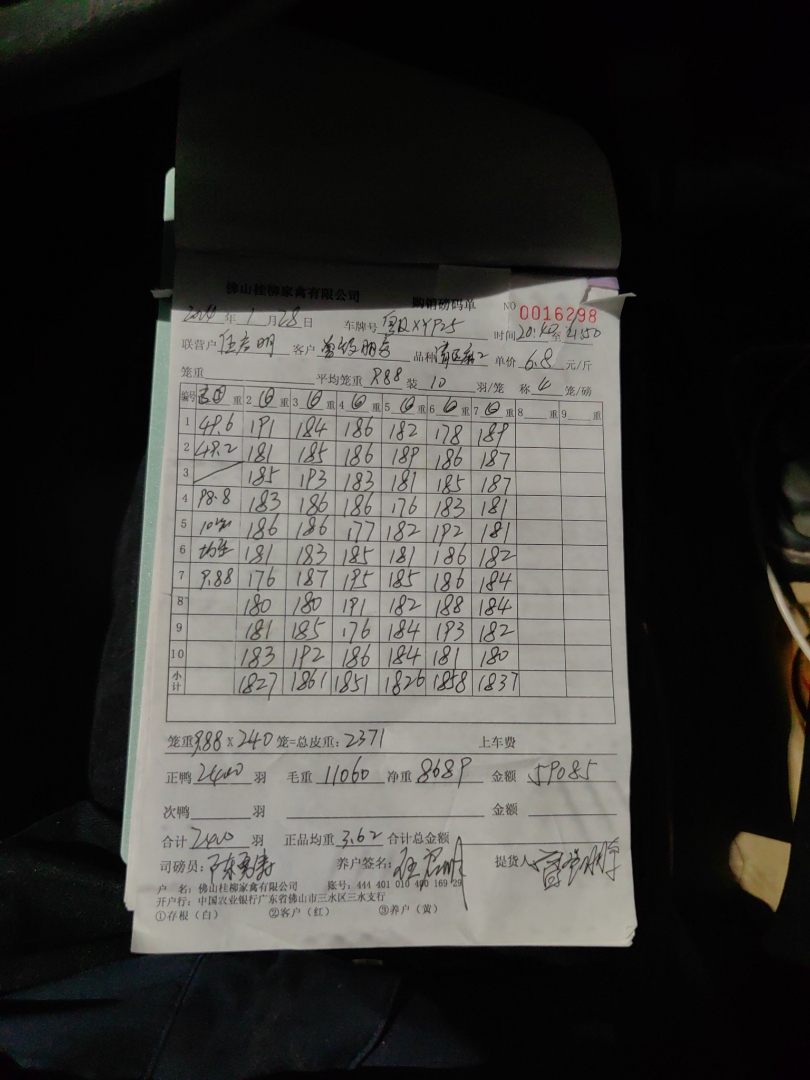 佛山桂柳家禽有限公司 购销磅码单 NO 0016298
2024 年 1 月 28 日 车牌号 XYP25 时间 20:40 至 21:50
联营户 伍志明 客户 品种 单价 6.8 元/斤
笼重 平均笼重 9.88 装 10 羽/笼 称 4 笼/磅
编号 重 2 6 重 3 6 重 4 6 重 5 6 重 6 6 重 7 6 重 8 重 9 重
1 49.6 191 184 186 182 178 189
2 49.2 181 185 186 189 186 187
3 185 193 183 181 185 187
4 98.8 183 186 186 176 183 181
5 186 186 177 182 192 181
6 181 183 185 181 186 182
7 9.88 176 187 195 185 186 184
8 180 180 191 182 188 184
9 181 185 176 184 193 182
10 183 192 186 184 181 180
小计 1827 1861 1851 1826 1858 1837
笼重 9.88 x 240 笼=总皮重: 2371 上车费
正鸭 2400 羽 毛重 11060 净重 8689 金额 59085
次鸭 羽 金额
合计 2400 羽 正品均重 3.62 合计总金额
司磅员: 养户签名: 提货人
户 名: 佛山桂柳家禽有限公司 账号: 444 401 010 400 169 29
开户行: 中国农业银行广东省佛山市三水区三水支行
①存根（白） ②客户（红） ③养户（黄）